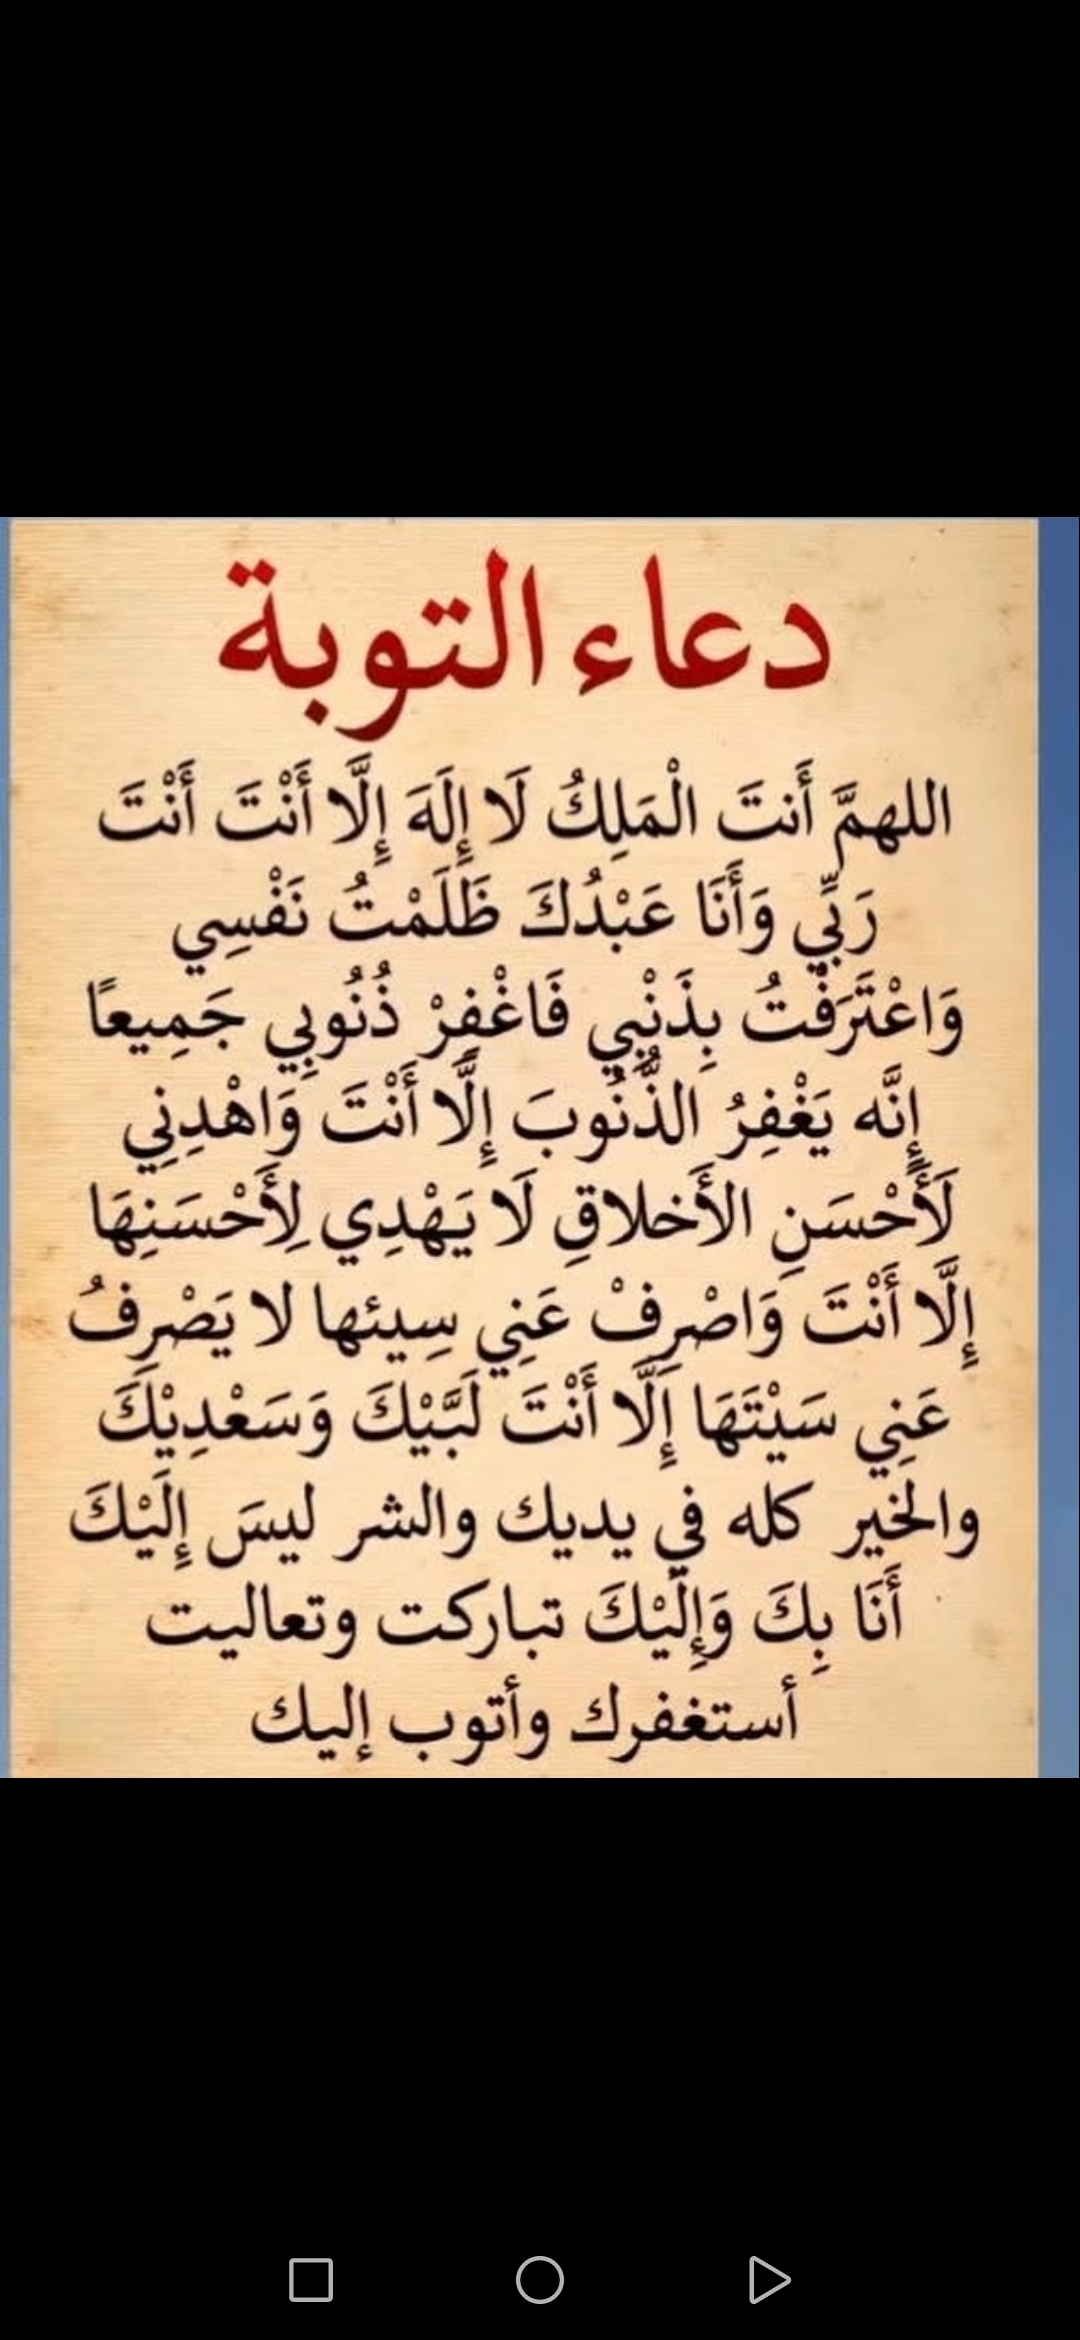 دعاء التوبة
اللهمَّ أَنتَ الْمَلِكُ لَا إِلَهَ إِلَّا أَنْتَ أَنْتَ
رَبِّي وَأَنَا عَبْدُكَ ظَلَمْتُ نَفْسِي
وَاعْتَرَفْتُ بِذَنْبِي فَاغْفِرْ ذُنُوبِي جَمِيعًا
إِنَّه يَغْفِرُ الذُّنُوبَ إِلَّا أَنْتَ وَاهْدِنِي
لَأَحْسَنِ الأَخلاقِ لَا يَهْدِي لِأَحْسَنِهَا
إِلَّا أَنْتَ وَاصْرِفْ عَنِي سِيئها لا يَصْرِفُ
عَنِي سَيْتَهَا إِلَّا أَنْتَ لَبَّيْكَ وَسَعْدِيْكَ
والخير كله في يديك والشر ليسَ إِلَيْكَ
أَنَا بِكَ وَإِلَيْكَ تباركت وتعاليت
أستغفرك وأتوب إليك